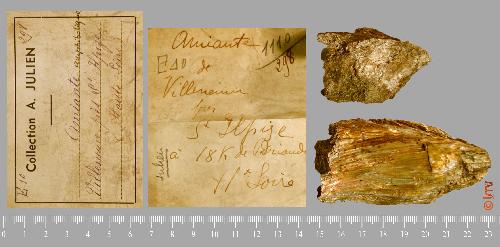 Collection A. JULIEN
E10
398
Amiante
près St Ilpize
Haute Loire
Amiante
1110
398
de
Villeneuve
près
St Ilpize
à 18 K de Brioude
Hte Loire
Julien
0 1 2 3 4 5 6 7 8 9 10 11 12 13 14 15 16 17 18 19 20 21 22 23